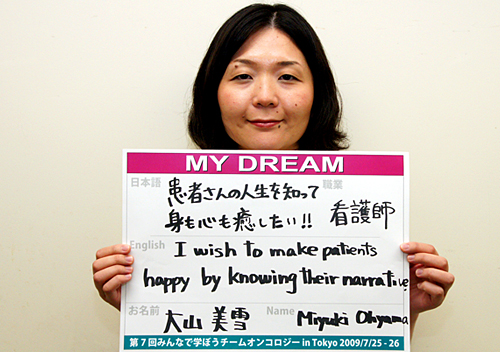 MY DREAM
日本語 患者さんの人生を知って 職業
身も心も癒したい!! 看護師
English I wish to make patients
happy by knowing their narrative
お名前 大山 美雪 Name Miyuki Ohyama
第7回みんなで学ぼうチームオンコロジー in Tokyo 2009/7/25 - 26